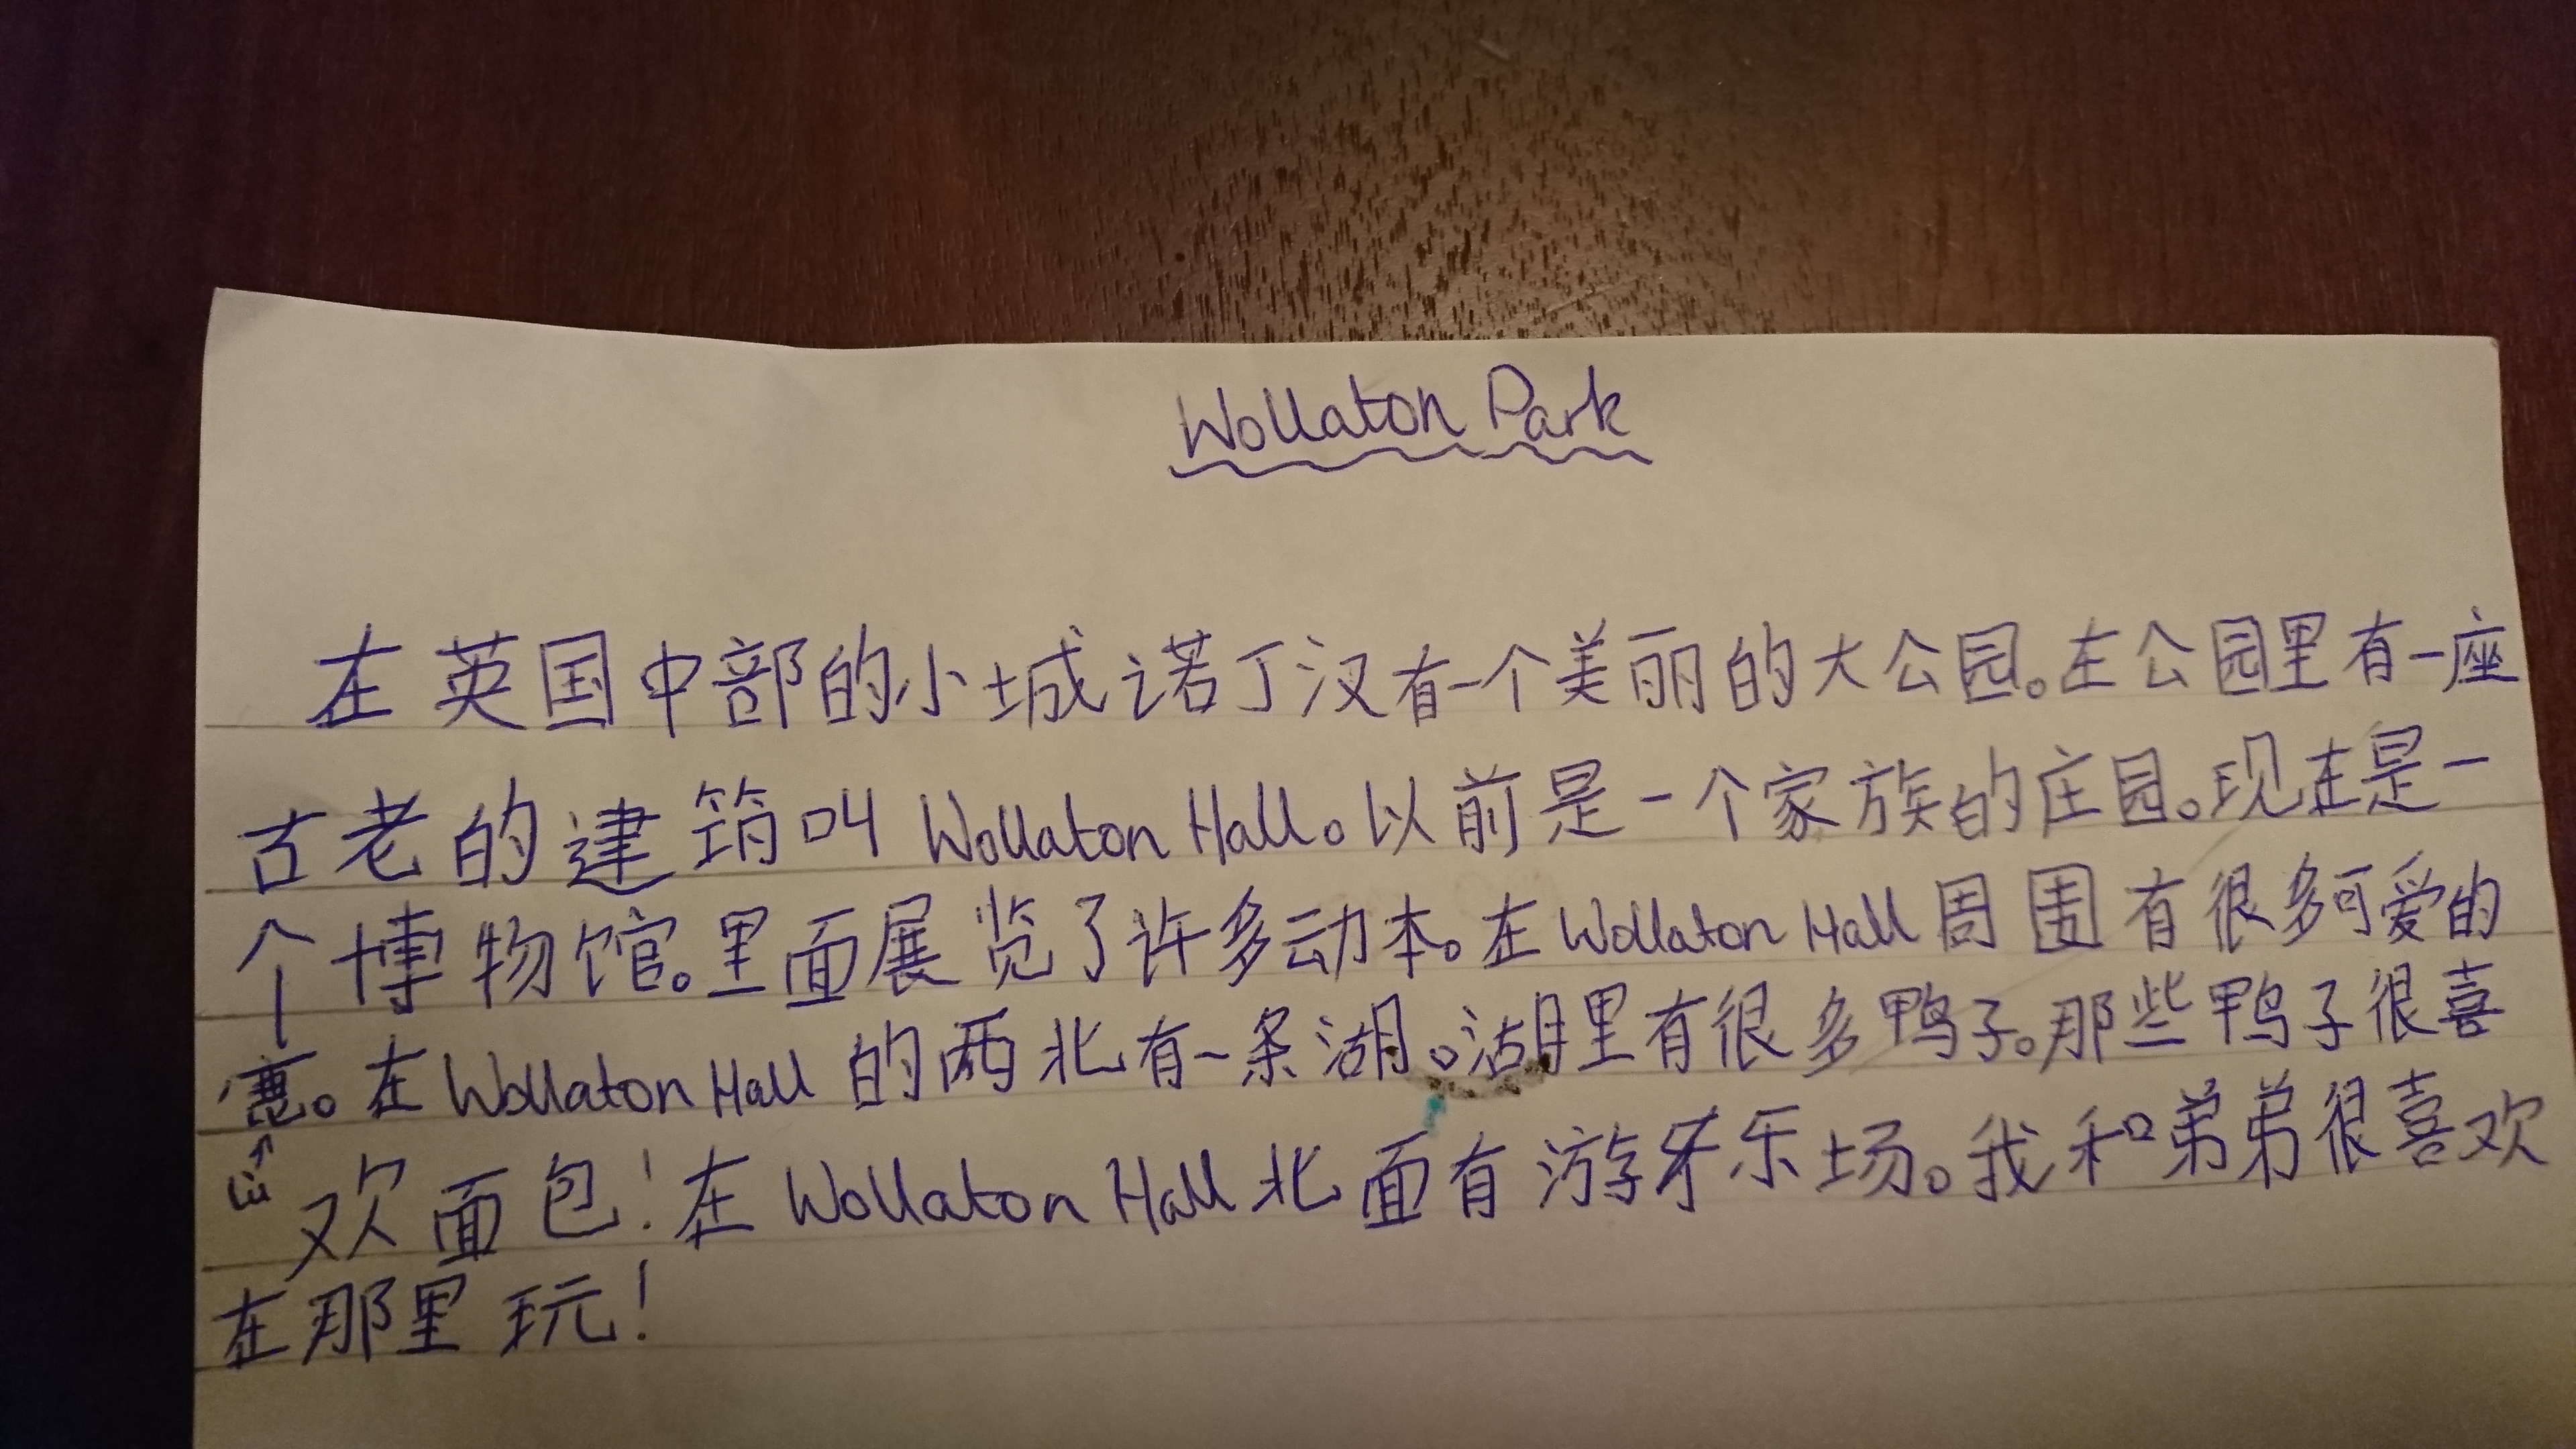 Wollaton Park
在英国中部的小城诺丁汉有一个美丽的大公园。在公园里有一座
古老的建筑叫 Wollaton Hall。以前是一个家族的庄园。现在是一
个博物馆。里面展览了许多动本。在 Wollaton Hall 周围有很多可爱的
鹿。在 Wollaton Hall 的西北有一条湖。湖里有很多鸭子。那些鸭子很喜
欢面包！在 Wollaton Hall 北面有游牙乐场。我和弟弟很喜欢
在那里玩！